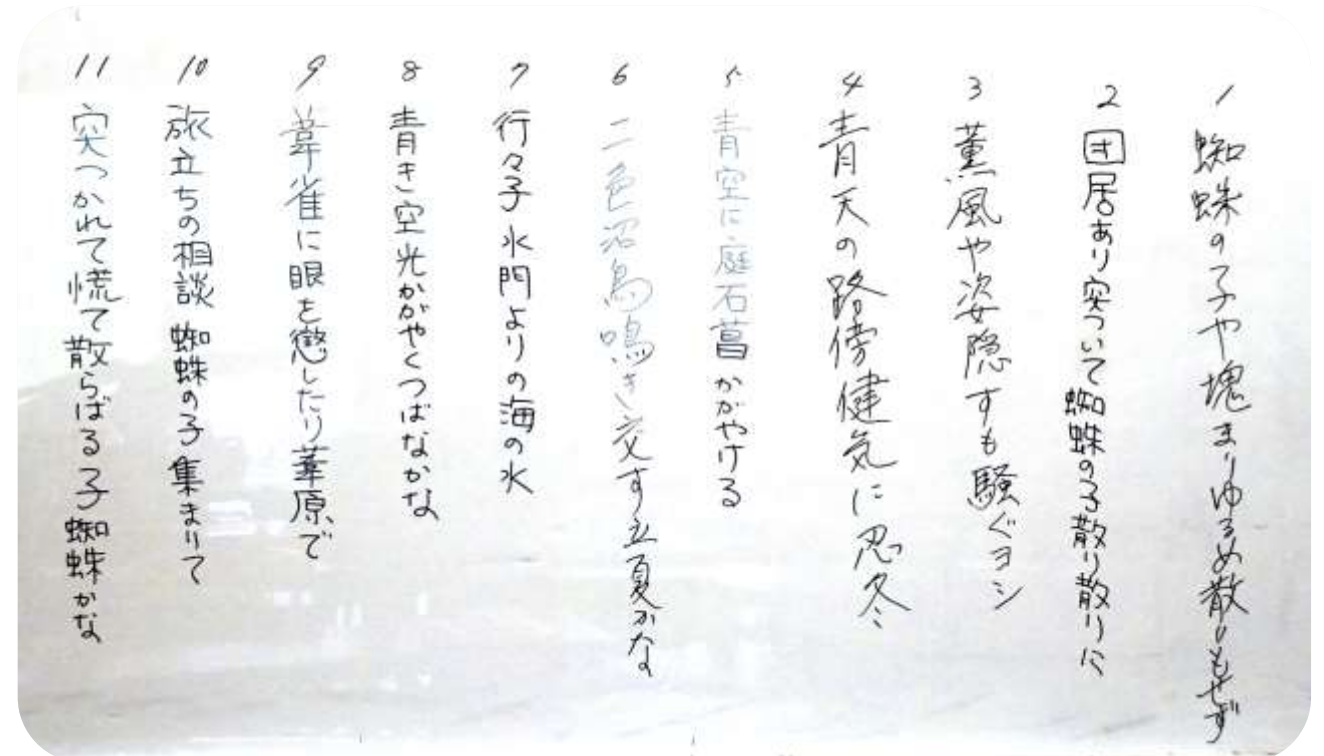 1 蜘蛛の子や塊まりゆるめ散りもせず
2 団居あり突ついて蜘蛛の子散り散りに
3 薫風や姿隠すも騒ぐヨシ
4 青天の路傍健気に忍冬
5 青空に庭石菖かがやける
6 二色沼鳥鳴き交す立夏かな
7 行々子水門よりの海の水
8 青き空光かがやくつばなかな
9 葦雀に眼を懲したり葦原で
10 旅立ちの相談蜘蛛の子集まりて
11 突つかれて慌て散らばる子蜘蛛かな